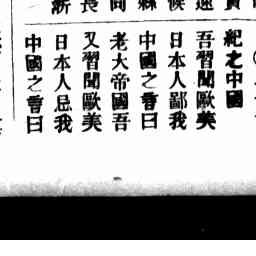 紀之中國
吾習聞歐美
日本人鄙我
中國之書曰
老大帝國吾
又習聞歐美
日本人忌我
中國之書曰